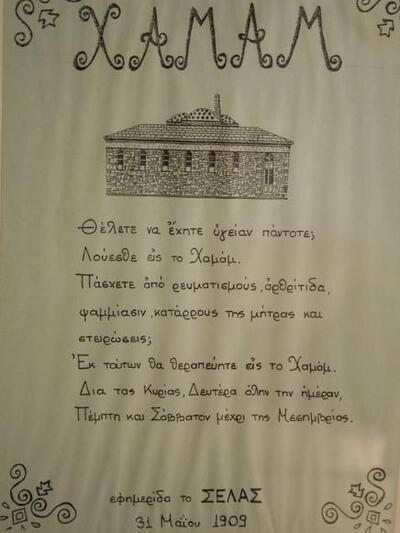 ΧΑΜΑΜ
Θέλετε να ἔχητε ὑγείαν πάντοτε;
Λούεσθε εἰς το Χαμάμ.
Πάσχετε ἀπό ρευματισμούς, ἀρθρίτιδα,
ψαμμίασιν, κατάρρους της μήτρας και
στειρώσεις;
Ἐκ τούτων θα θεραπεύητε εἰς το Χαμάμ.
Δια τας Κυρίας, Δευτέρα ὅλην την ἡμέραν,
Πέμπτη και Σάββατον μέχρι της Μεσημβρίας.
εφημερίδα το ΣΕΛΑΣ
31 Μαΐου 1909